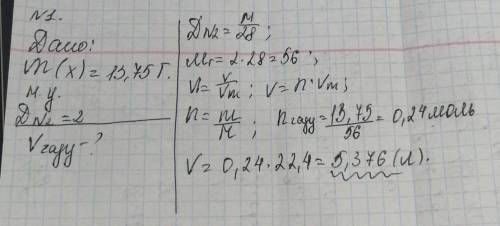 №1.
Дано:
m(x) = 13,75 г.
н.у.
D_{N_2} = 2
V_{газу} - ?
D_{N_2} = \frac{M}{28};
Mr = 2 · 28 = 56;
n = \frac{V}{Vm}; V = n · Vm;
n = \frac{m}{M}; n_{газу} = \frac{13,75}{56} = 0,24 моль
V = 0,24 · 22,4 = 5,376 (л).